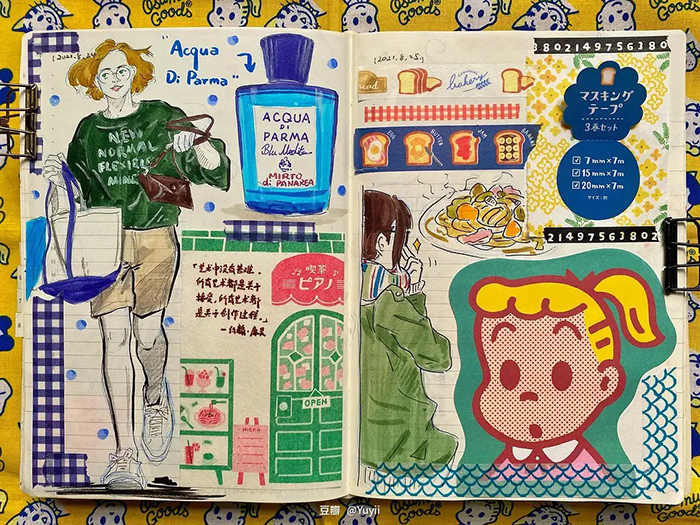 Osumu Goods
[2021.8.24]
"Acqua
Di Parma"
ACQUA
DI
PARMA
Blu Mediterraneo
MIRTO
di PANAREA
NEW
NORMAL
FLEXIBLE
MIND
「艺术中没有基准。
所有艺术都是关于
接受,所有艺术都
是关于创作过程。」
—约翰·
喫茶
ピアノ
OPEN
menu
[2021.8.25.]
bread
bakery
EGG
BUTTER
JAM
BANANA
3802149756380
マスキング
テープ
3巻セット
7mm×7m
15mm×7m
20mm×7m
サイズ:約
2149756380 2
豆瓣 @Yuyii